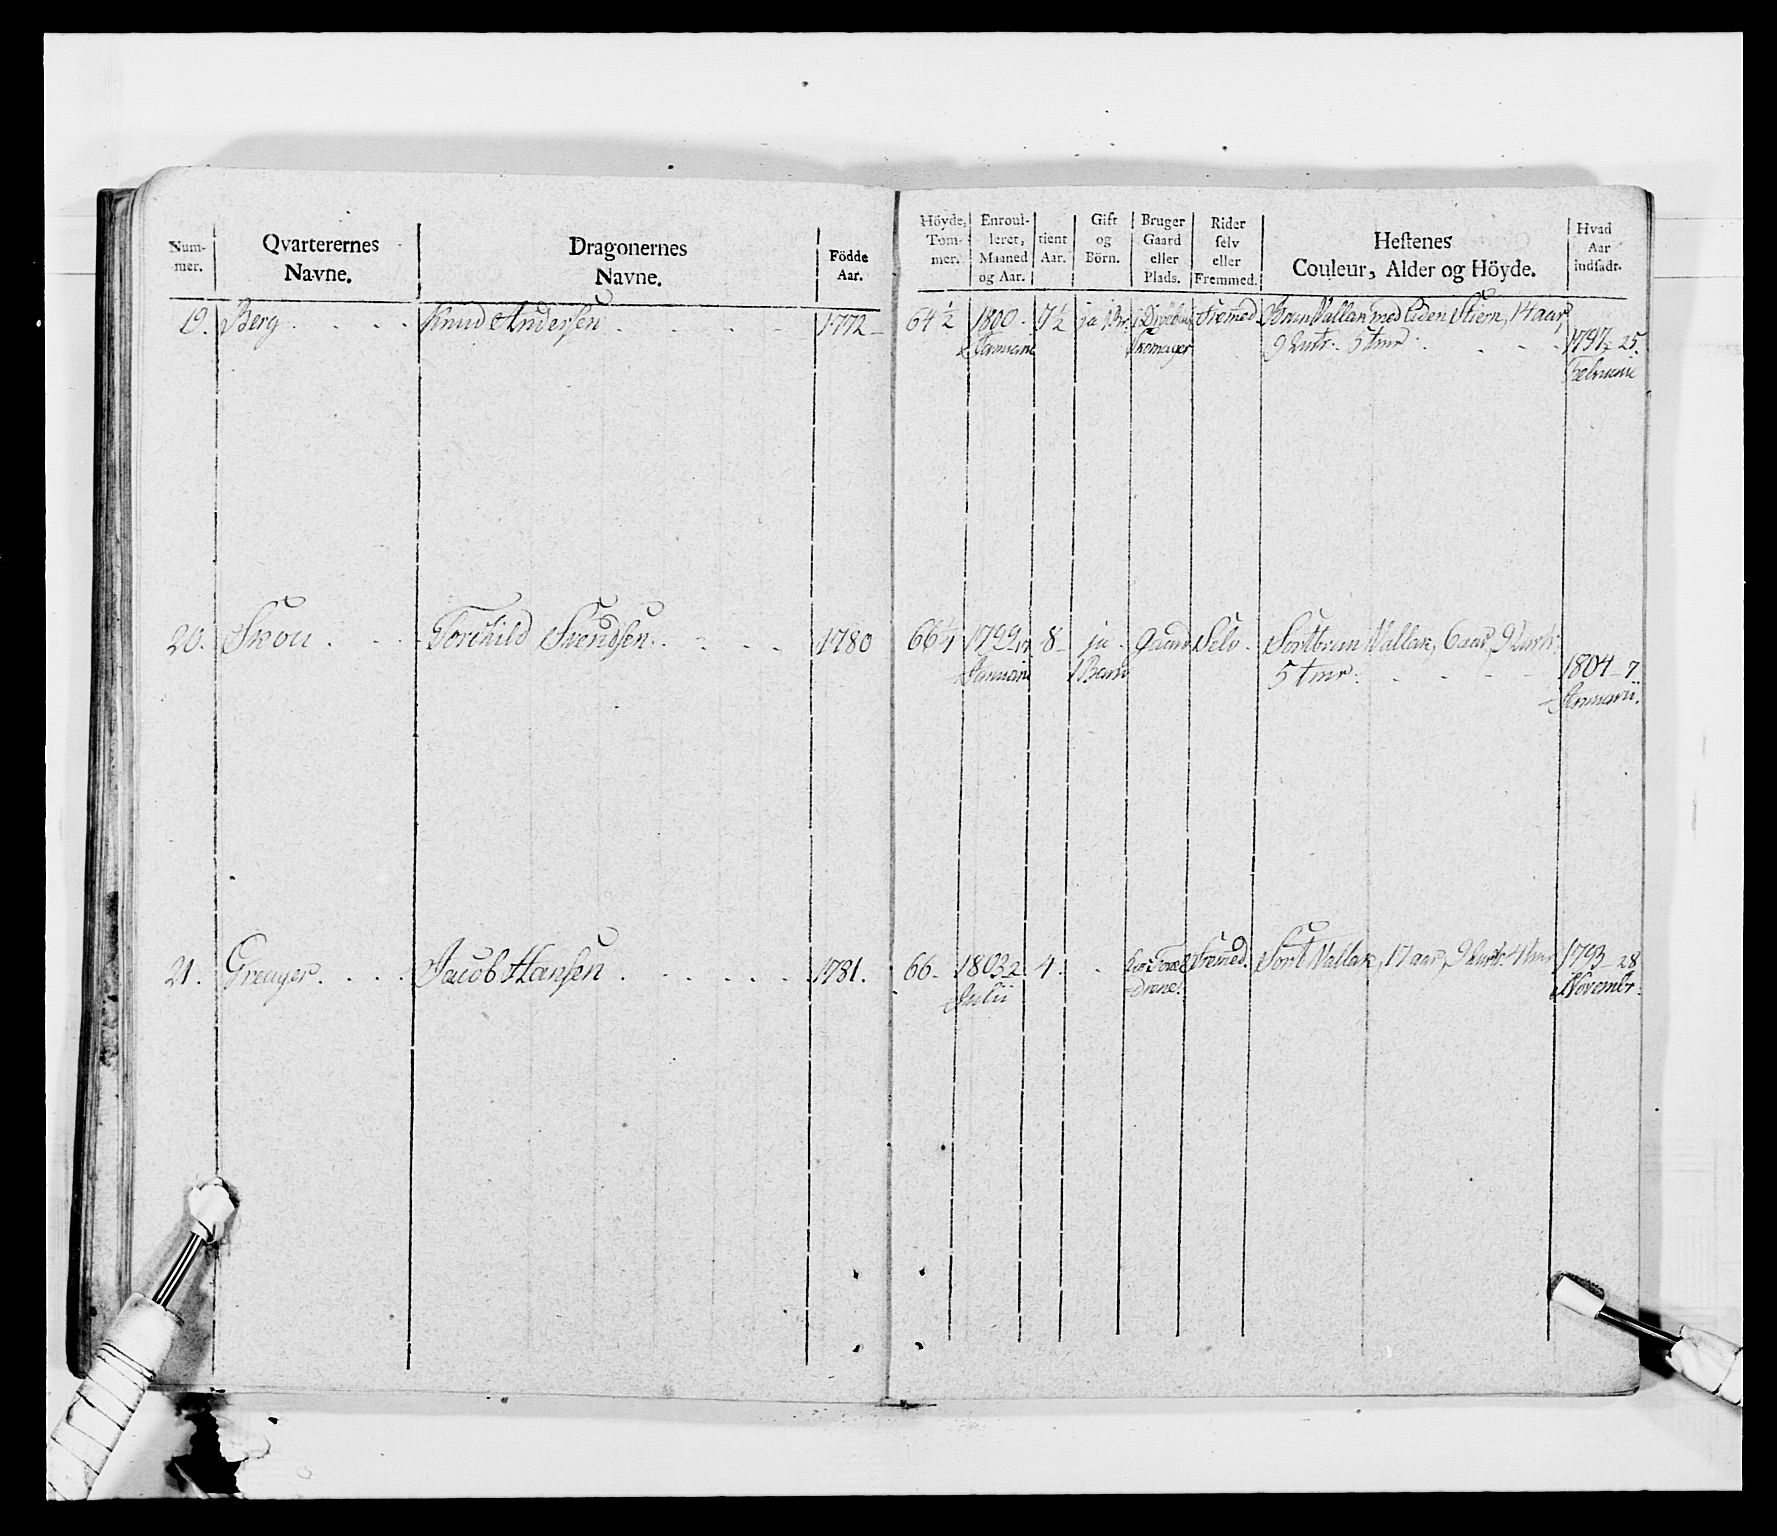 Num-
mer.
Qvarterernes
Navne.
Dragonernes
Navne.
Födde
Aar.
Höyde,
Tom-
mer.
Enroul-
leret,
Maaned
og Aar.
tient
Aar.
Gift
og
Börn.
Bruger
Gaard
eller
Plads.
Rider
selv
eller
Fremmed.
Hestenes
Couleur, Alder og Höyde.
Hvad
Aar
indsadt.
19. Berg Knud Andersen 1772 64 1/2 1800 7 1/2 ja 1 Br. Fremed Brun Vallak med liden Stiern, 14 aar,
Januarii 9 Qvrtr. 5 tmr 1797 25.
Februarii
20. Skou Torkild Svendsen 1780 1799 8 ja Gaard Selv Sortbrun Vallak, 6 aar, 9 Qvrtr.
Januarii 1 Barn 5 tmr 1804 7
Januarii.
21. Greager Jacob Hansen 1781. 66 1803 2 4 Fremed. Sort Vallak, 17 aar, 9 Qvrtr. 4 tmr 1793 28
Julii Novembr.